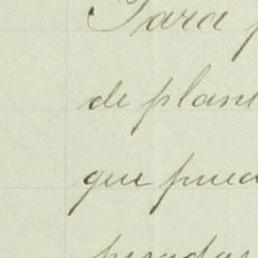 Para p
de plan
que pued